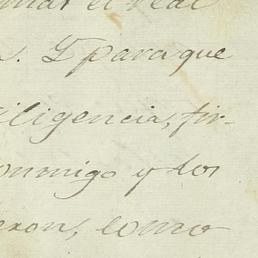 mar el real
. Y para que
iligencia, fir-
onmigo y los
eron, como